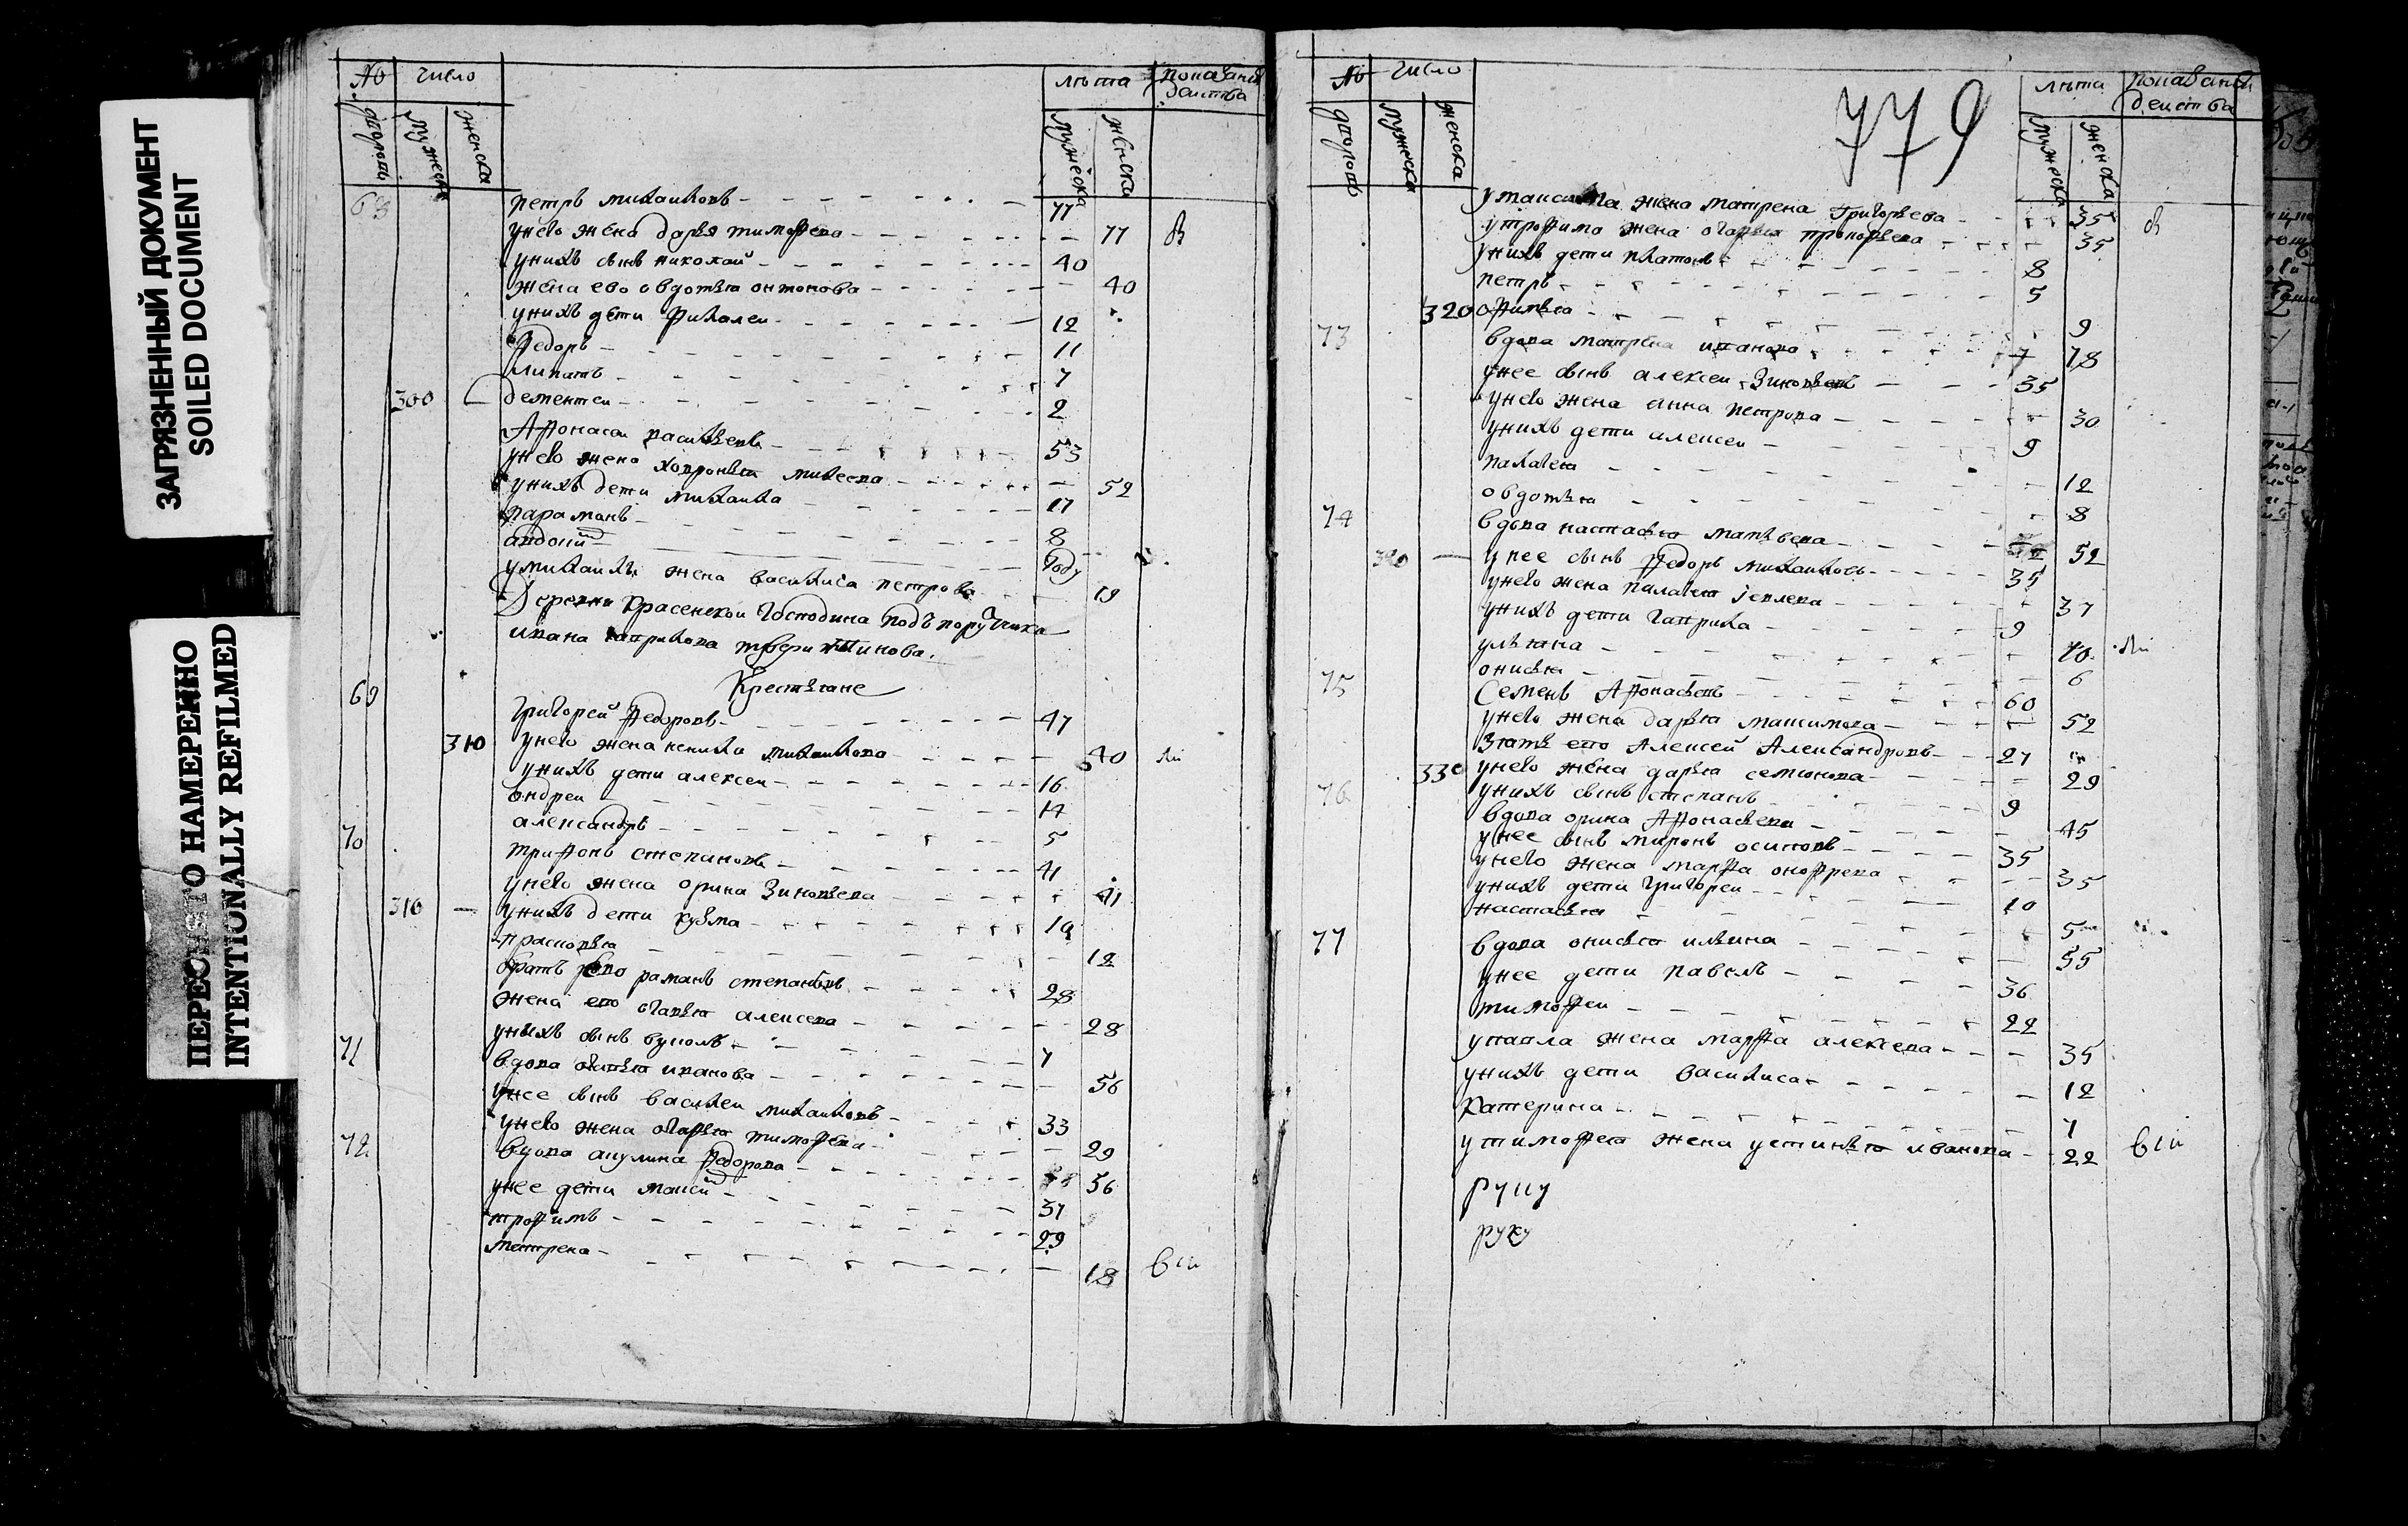 ЗАГРЯЗНЕННЫЙ ДОКУМЕНТ
SOILED DOCUMENT
ПЕРЕСНЯТО НАМЕРЕННО
INTENTIONALLY REFILMED
№ число лѣта
мужеска женска мужеска женска
68 петръ михаиловъ 77
унево жена дарья тимофева 77
унихъ сынъ николай 40
жена ево овдотья онтонова 40
унихъ дети 12
Федоръ 11
Липатъ 7
300 дементеи 2
Афонасеи васильевъ 53
унево жена михеева 52
унихъ дети михаила 17
парамонъ 8
году
умихаилы жена василиса петрова 19
Деревни Красенскои Господина подъпорутчика
ивана гаврилова
Крестьяне
69 Григорей Федоровъ 47
310 унево жена михаилова 40
унихъ дети алексеи 16
ондреи 14
александръ 5
70 трифонъ степановъ 41
унево жена орина зиновьева 41
310 унихъ дети кузма 19
прасковья 12
братъ ево раманъ степановъ 28
жена ево огафья алексева 28
унихъ сынъ 7
71 вдова иванова 56
унее сынъ василеи михаиловъ 33
унево жена огафья тимофева 29
72 вдова акулина Федорова 56
унее дети 37
трофимъ 29
Матрена 18
№ число 779 лѣта
мужеска женска мужеска женска
умаксима жена матрена григорьева 35
утрофима жена прокофьева 35
унихъ дети платонъ 8
петръ 5
320 офимья 9
73 вдова матрена иванова 78
унее сынъ алексеи зиновьевъ 35
унево жена анна петрова 30
унихъ дети алексеи 9
палагея 12
овдотья 8
74 вдова настасья матвеева 52
унее сынъ Федоръ михаиловъ 35
унево жена палагея 37
унихъ дети гаврила 9
ульяна 10
онисья 6
75 Семенъ Афонасьевъ 60
унево жена дарья максимова 52
Зять ево Алексей Александровъ 27
330 унево жена дарья семионова 29
унихъ сынъ степанъ 9
76 вдова орина Афонасьева 45
унее сынъ миронъ осиповъ 35
унево жена марфа онофрева 35
унихъ дети григореи 10
настасья 5
77 вдова онисья ильина 55
унее дети павелъ 36
тимофеи 22
упавла жена марфа алексева 35
унихъ дети василиса 12
катерина 7
утимофея жена устинья иванова 22
руку
руку